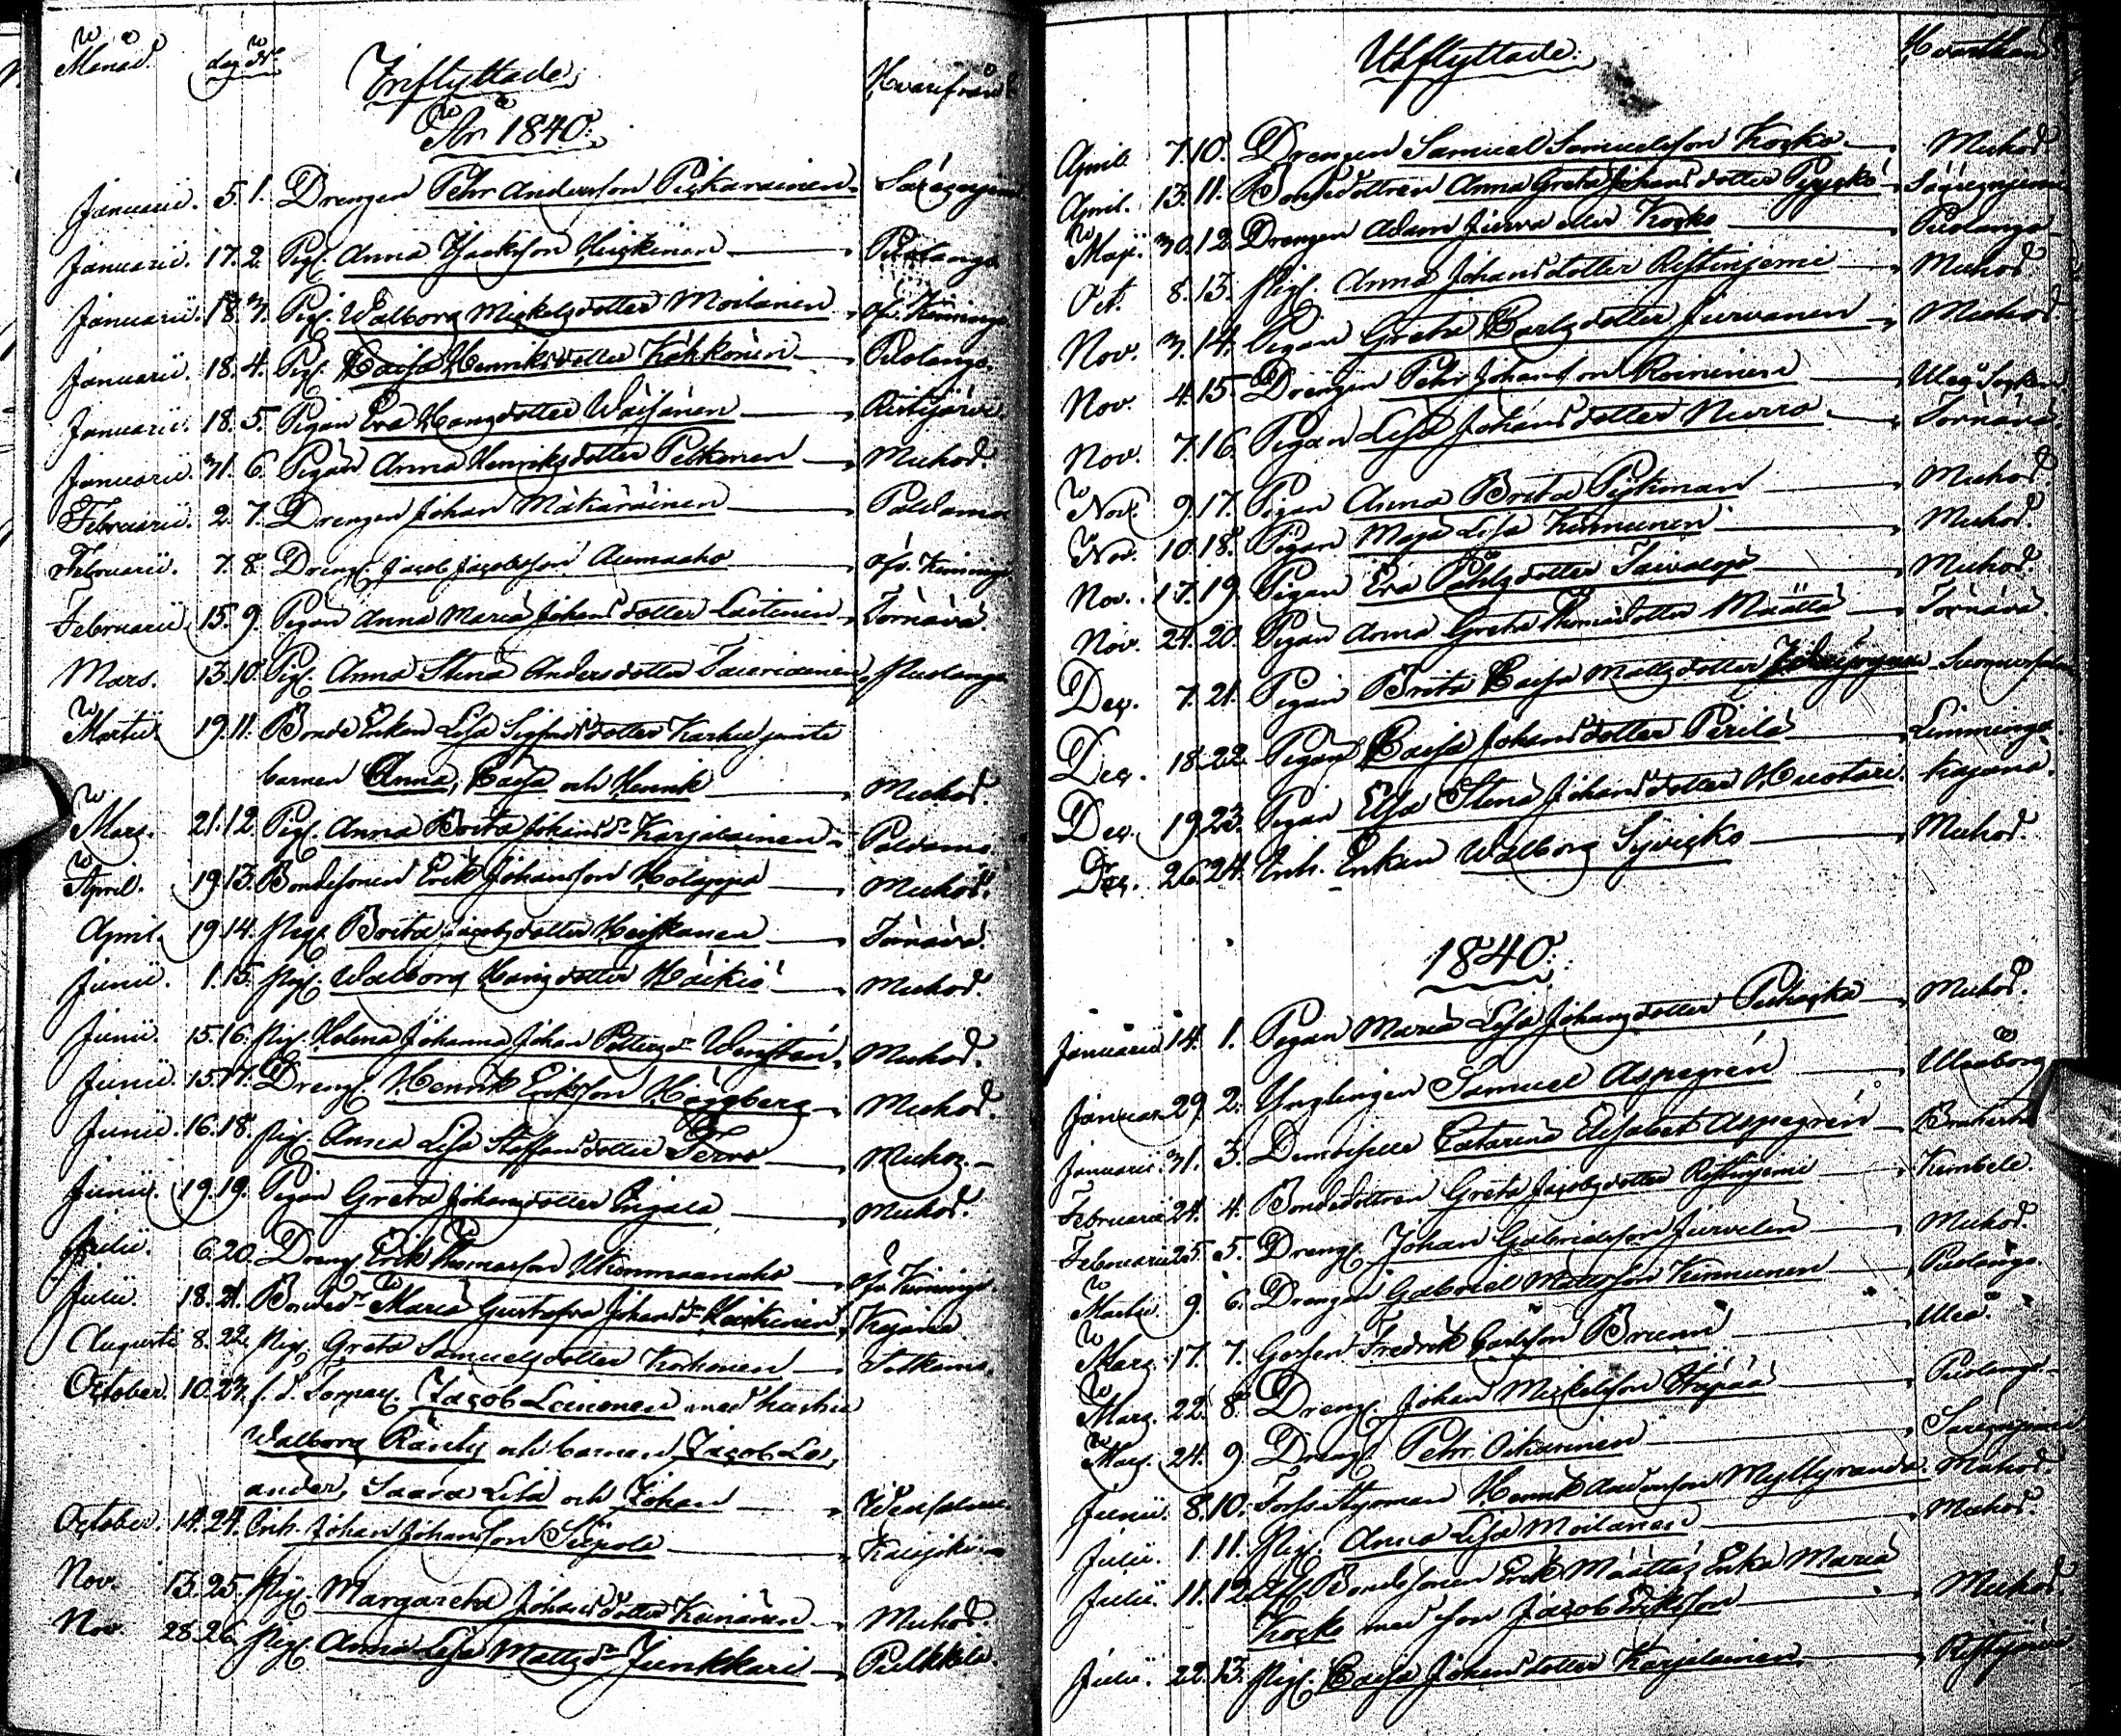 Månad. dag. Nr.
Inflyttade
Hvarifrån
År 1840.
Januarii. 5. 1. Drengen Pehr Andersson Pickarainen
Januarii. 17. 2. Pig. Anna Isaksson Heickinen Pudango
Januarii. 18. 3. Pig. Walborg Mickelsdotter Moilanen öfv. Kiminge
Januarii. 18. 4. Pig. Caisa Henriksdotter Kähkönen Puolango.
Januarii. 18. 5. Pigan Eva Hansdotter Wäisänen Ristijärvi
Januarii. 31. 6. Pigan Anna Henriksdotter Pelkonen Muhos.
Februarii. 2. 7. Drengen Johan Mäkäräinen Paldamo
Februarii. 7. 8. Dreng. Jacob Jacobsson Aumaaho öfv. Kiminge
Februarii. 15. 9. Pigan Anna Maria Johansdotter Laitinen Tornävä.
Mars. 13. 10. Pig. Anna Stina Andersdotter Tauriainen Puolango
Martii 19. 11. Bonde Enkan Lisa Sigfridsdotter Karhu jemte
barnen Anna, Caisa och Henrik Muhos.
Mars. 21. 12. Pig. Anna Brita Johansdr Karjalainen Paldamo.
April. 19. 13. Bondesonen Erik Johansson Holappa Muhos.
April. 19. 14. Pig. Brita Jacobsdotter Heiskanen Tornävä.
Junii. 1. 15. Pig. Walborg Hansdotter Häikiö Muhos.
Junii. 15. 16. Pig. Helena Johanna Johan Pettersdr Wenstän Muhos.
Junii. 15. 17. Dreng. Henrik Eriksson Högberg Muhos.
Junii. 16. 18. Pig. Anna Lisa Staffansdotter Tervo Muhos.
Junii. 19. 19. Pigan Greta Johansdotter Pigala Muhos.
Julii. 6. 20. Dreng. Erik Thomasson Ukonmaanaho öfv. Kiminge.
Julii. 18. 21. Bondedr Maria Gustafva Johansdr Heickinen Kajana
Augusti 8. 22. Pig. Greta Samuelsdotter Korhonen Sotkamo.
October. 10. 23. f. d. Torpar. Jacob Leinonen med hustru
Walborg Ränty och barnen Jacob Le,
ander, Saara Lisa och Johan Idensalmi.
October. 14. 24. Inh. Johan Johansson Siipola
Nov. 13. 25. Pig. Margareta Johansdotter Keinänen Muhos.
Nov. 28. 26. Pig. Anna Lisa Mattsdr Junkkari Pulkkila.
Utflyttade.
Hvarthän
April. 7. 10. Drengen Samuel Samuelsson Kocko Muhos
April. 13. 11. Bondedottren Anna Greta Johansdotter Pyyckö Säresniemi
Maji. 30. 12. Drengen Adam Jurva eller Kocko Puolango
Oct. 8. 13. Pig. Anna Johansdotter Ristinjemi Muhos
Nov. 3. 14. Pigan Greta Carlsdotter Jurvanen Muhos
Nov. 4. 15. Drengen Pehr Johansson Roininen Uleå Socken
Nov. 7. 16. Pigan Lisa Johansdotter Nurro Tornävä.
Nov. 9. 17. Pigan Anna Brita Pytkman Muhos.
Nov. 10. 18. Pigan Maja Lisa Kinnunen Muhos.
Nov. 17. 19. Pigan Eva Pehlsdotter Taivalope Muhos.
Nov. 24. 20. Pigan Anna Greta Thomasdotter Määttä Tornävä.
Dec. 7. 21. Pigan Brita Caisa Mattsdotter Suomussalmi
Dec. 18. 22. Pigan Caisa Johansdotter Perilä Limmingo.
Dec. 19. 23. Pigan Elsa Stina Johansdotter Huotari Kajana.
Dec. 26. 24. Inh. Enkan Walborg Syvicko Muhos.
1840.
Januarii 14. 1. Pigan Maria Lisa Johansdotter Puhacka Muhos.
Januar. 29. 2. Ynglingen Samuel Aspegrén Uleåborg
Januarii. 31. 3. Demoiselle Catarina Elisabet Aspegrén Brahestad
Februarii 24. 4. Bondedottren Greta Jacobsdotter Ristinjemi Kembele.
Februarii 25. 5. Dreng. Johan Gabrielsson Jurvelin Muhos.
Martii. 9. 6. Drengen Gabriel Mattsson Kinnunen Puolango.
Mars. 17. 7. Gossen Fredrik Carlsson Brunn Uleå.
Mars. 22. 8. Dreng. Johan Mickelsson Yöpää Puolango
Mars. 24. 9. Dreng. Pehr Oikarinen Säresniemi
Junii. 8. 10. Forsstyrman Henrik Andersson Myllyranda. Muhos.
Julii. 1. 11. Pig. Anna Lisa Moilanen Muhos.
Julii. 11. 12. Afl. Bondesonen Erik Määttäs Enka Maria
Kocko med son Jacob Eriksson Muhos
Julii. 22. 13. Pig. Caisa Johansdotter Karjalainen Ristijärvi